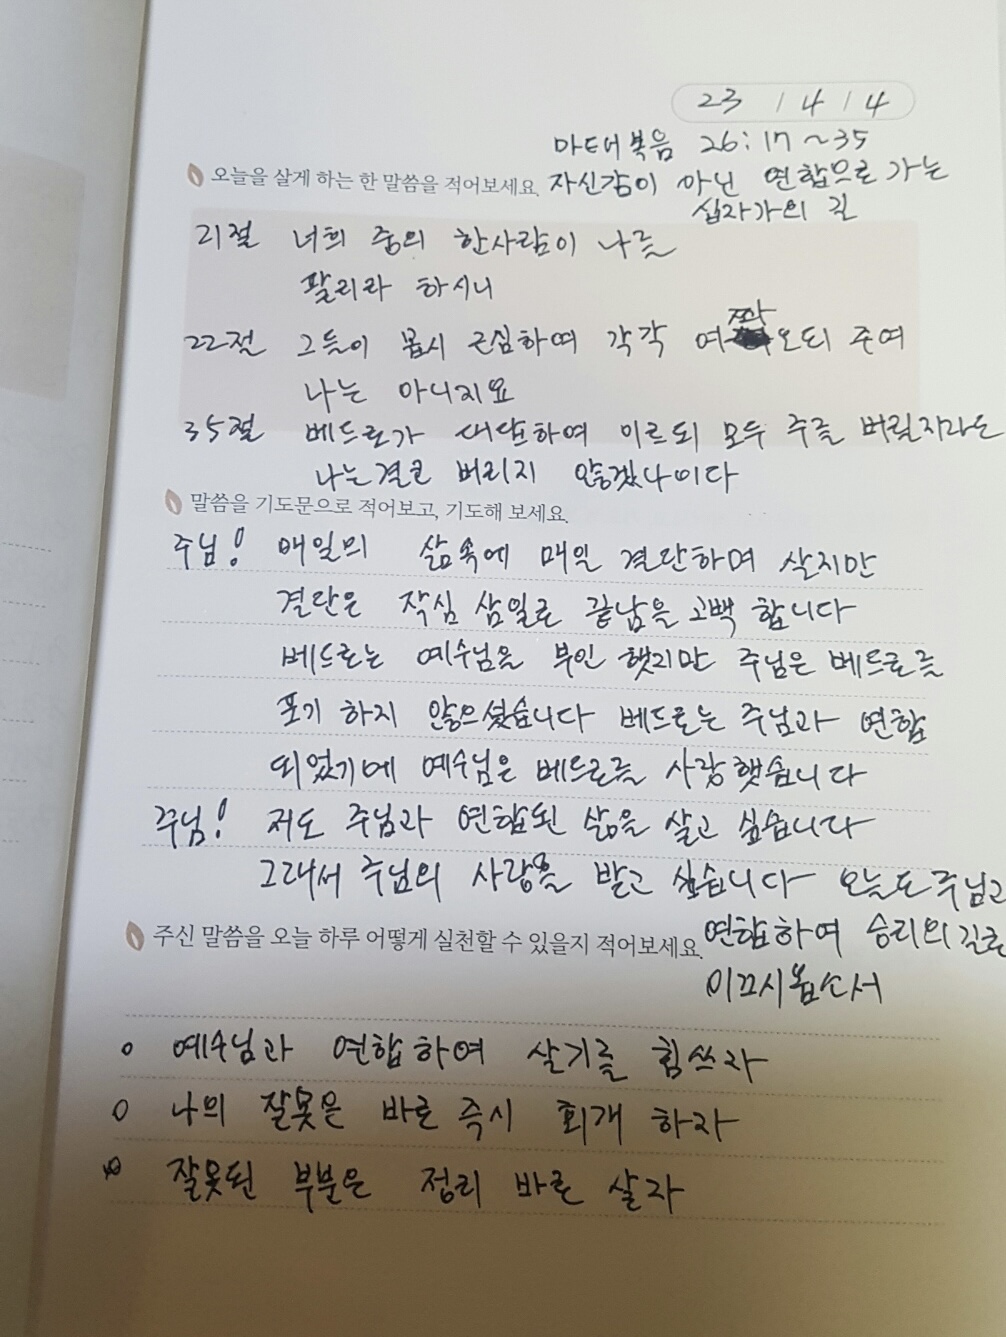 23 / 4 / 4
마태복음 26:17~35
오늘을 살게 하는 한 말씀을 적어보세요. 자신감이 아닌 연합으로 가는
십자가의 길
21절 너희 중의 한사람이 나를
팔리라 하시니
22절 그들이 몹시 근심하여 각각 여짜오되 주여
나는 아니지요
35절 베드로가 대답하여 이르되 모두 주를 버릴지라도
나는결코 버리지 않겠나이다
말씀을 기도문으로 적어보고, 기도해 보세요.
주님! 매일의 삶속에 매일 결단하며 살지만
결단은 작심 삼일로 끝남을 고백 합니다
베드로는 예수님을 부인 했지만 주님은 베드로를
포기 하지 않으셨습니다 베드로는 주님과 연합
되었기에 예수님은 베드로를 사랑했습니다
주님! 저도 주님과 연합된 삶을 살고 싶습니다
그래서 주님의 사랑을 받고 싶습니다 오늘도 주님과
주신 말씀을 오늘 하루 어떻게 실천할 수 있을지 적어보세요. 연합하여 승리의길로
이끄시옵소서
o 예수님과 연합하여 살기를 힘쓰자
o 나의 잘못은 바로 즉시 회개 하자
o 잘못된 부분은 정리 바로 살자